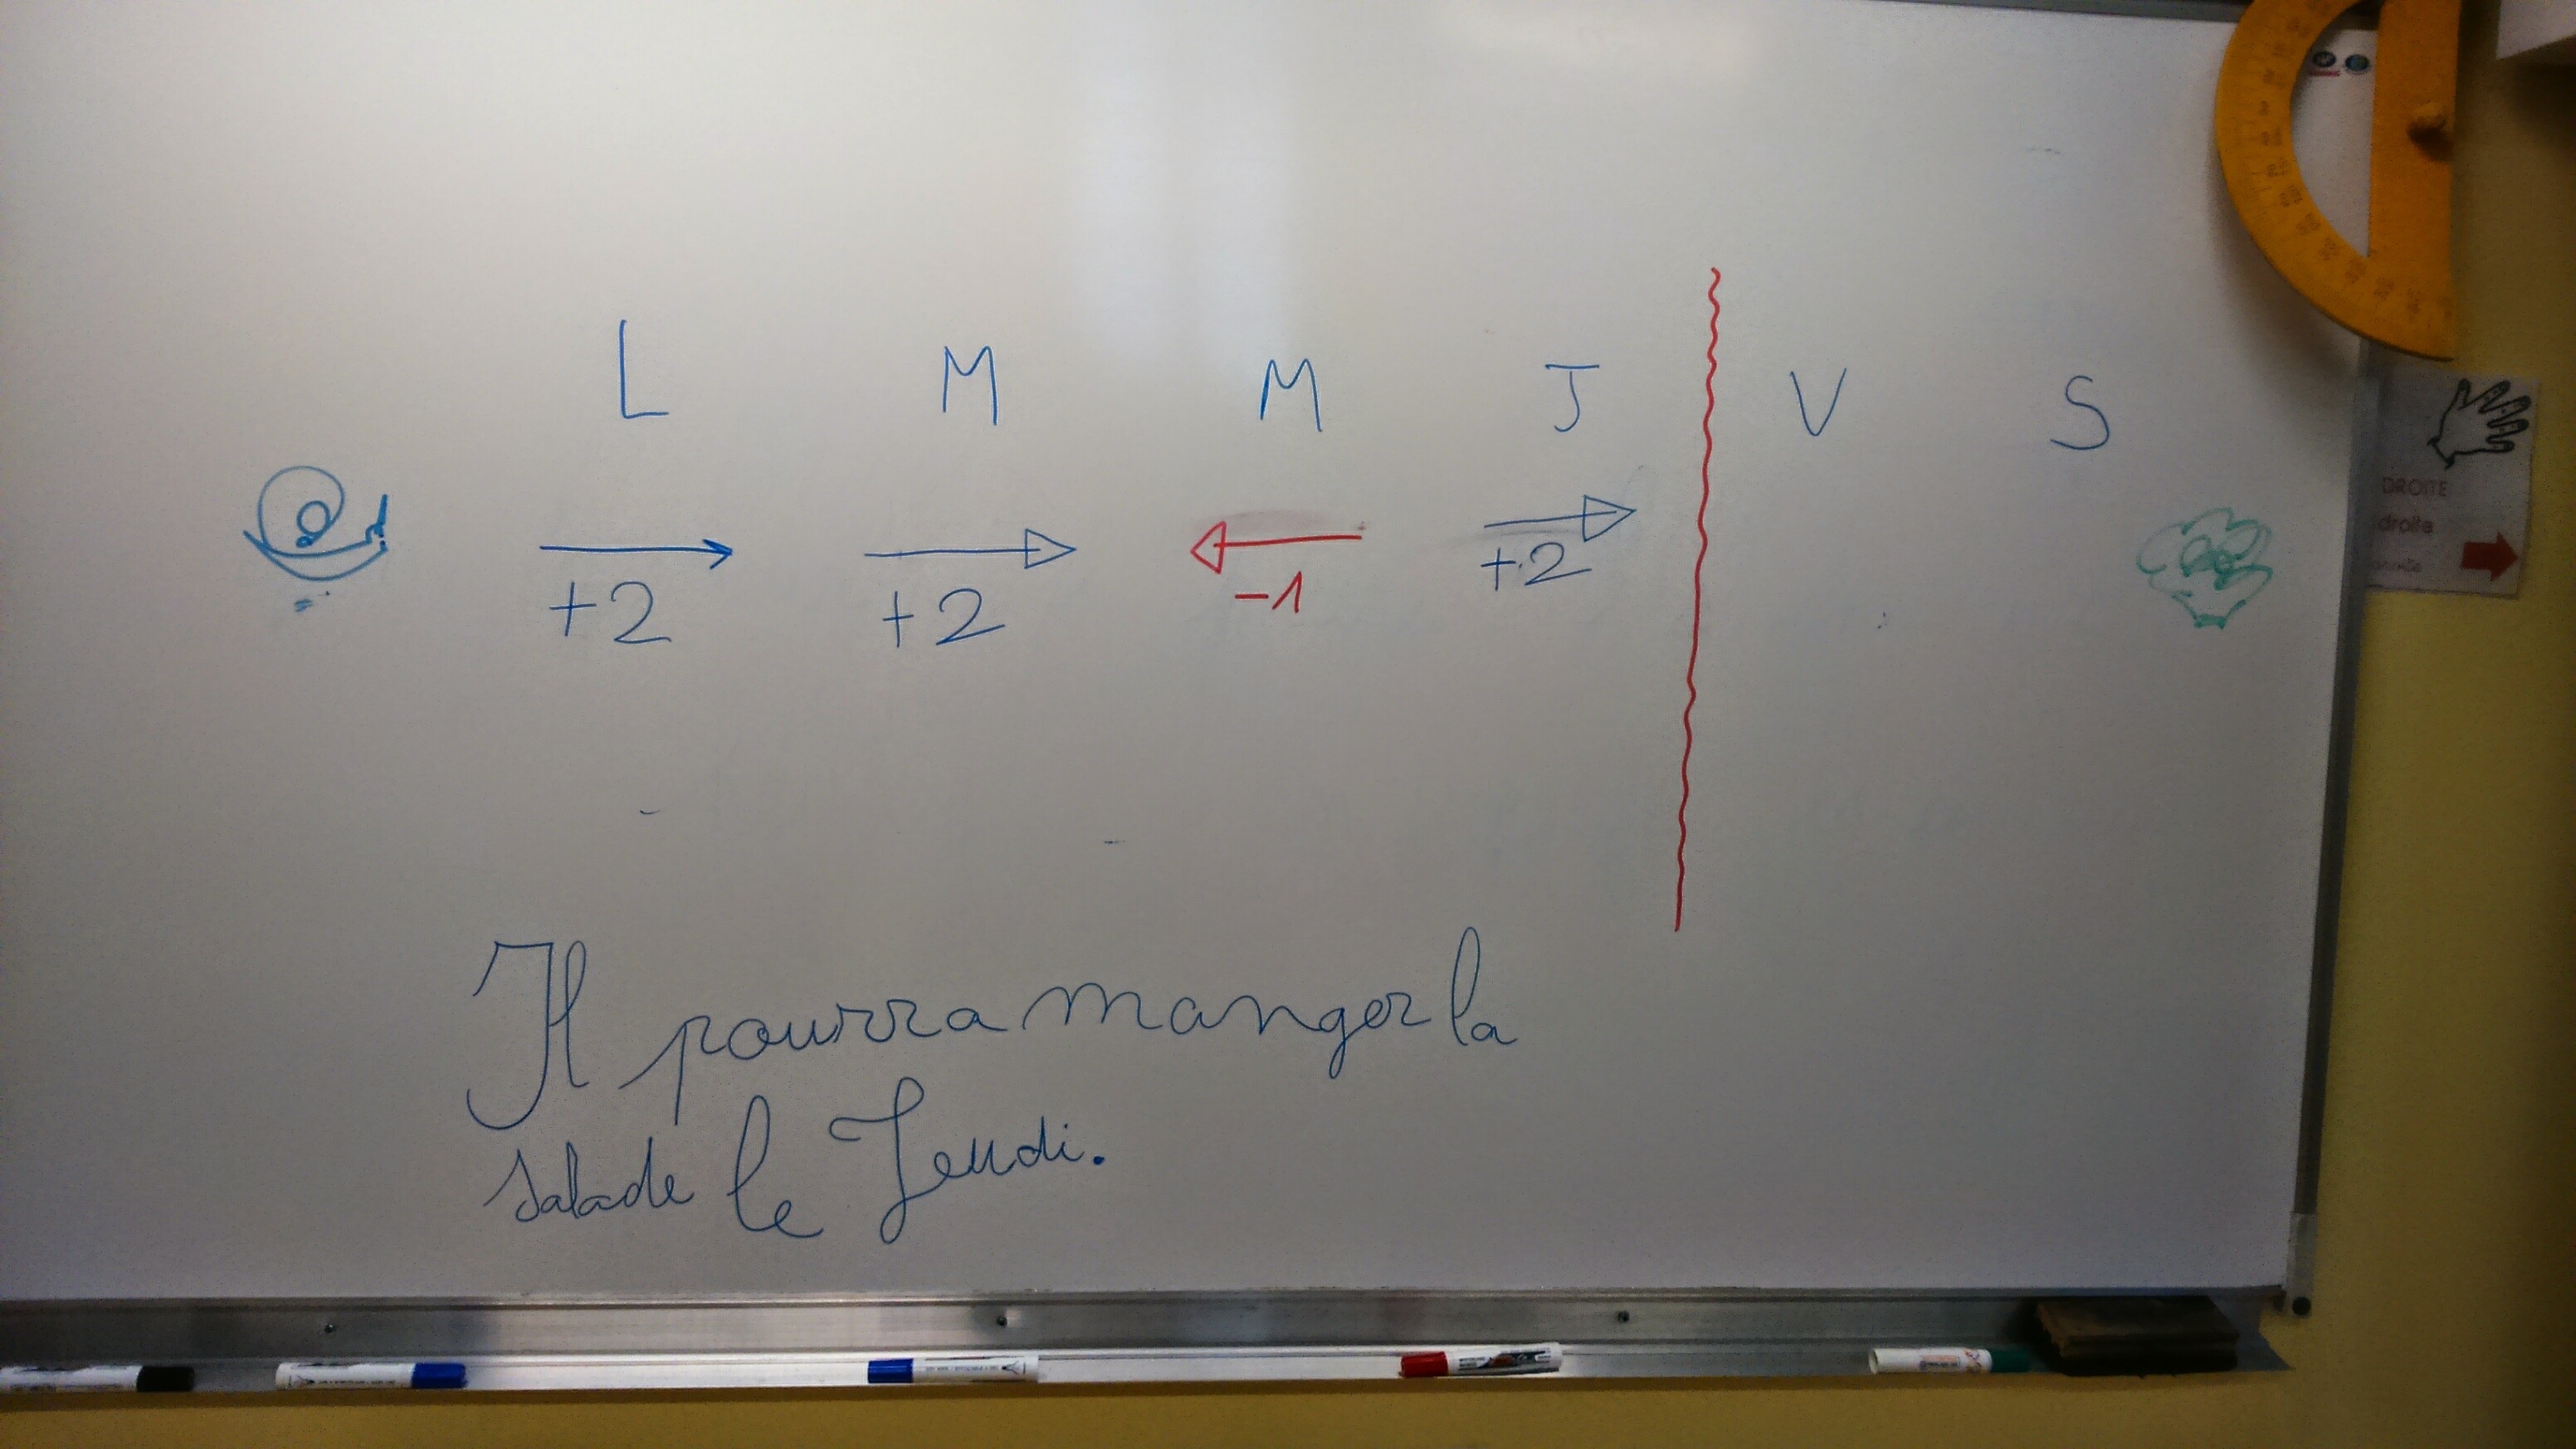 L M M J V S
+2 +2 -1 +2
Il pourra manger la
salade le Jeudi.
DROITE
droite
droite